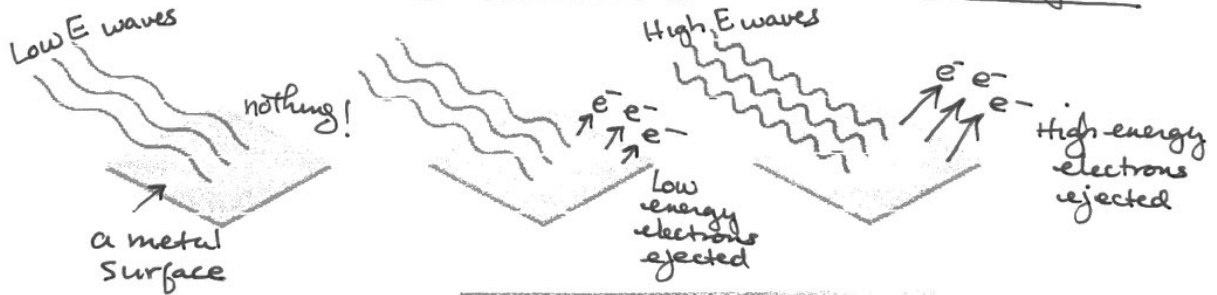 Low E waves
nothing!
a metal
surface
e⁻ e⁻
e⁻
Low
energy
electrons
ejected
High E waves
e⁻ e⁻
e⁻
High energy
electrons
ejected